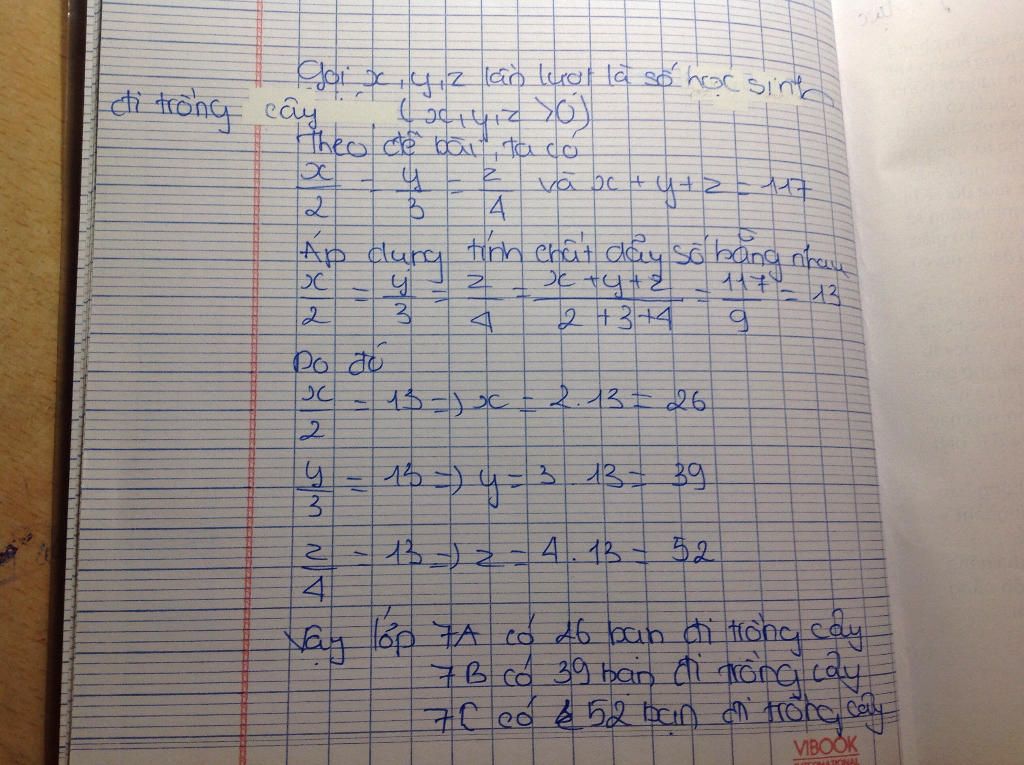 Gọi x, y, z lần lượt là số học sinh
đi trồng cây (x, y, z >0)
Theo đề bài, ta có
x/2 = y/3 = z/4 và x + y + z = 117
Áp dụng tính chất dãy số bằng nhau
x/2 = y/3 = z/4 = x + y + z/2 + 3 + 4 = 117/9 = 13
Do đó
x/2 = 13 => x = 2 . 13 = 26
y/3 = 13 => y = 3 . 13 = 39
z/4 = 13 => z = 4 . 13 = 52
Vậy lớp 7A có 26 bạn đi trồng cây
7B có 39 bạn đi trồng cây
7C có 52 bạn đi trồng cây
VIBOOK
INTERNATIONAL